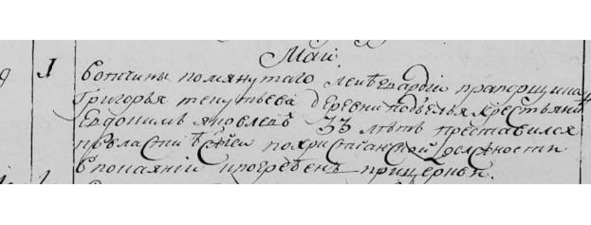 Май
1 вотчины помянутаго лейбгвардіи прапорщика
Григорья текутьева деревни подвелья крестьянинъ
Евдокимъ яковлевъ 33 лѣтъ преставился
по христіанской должности
в покаяніи и погребенъ при церкви.